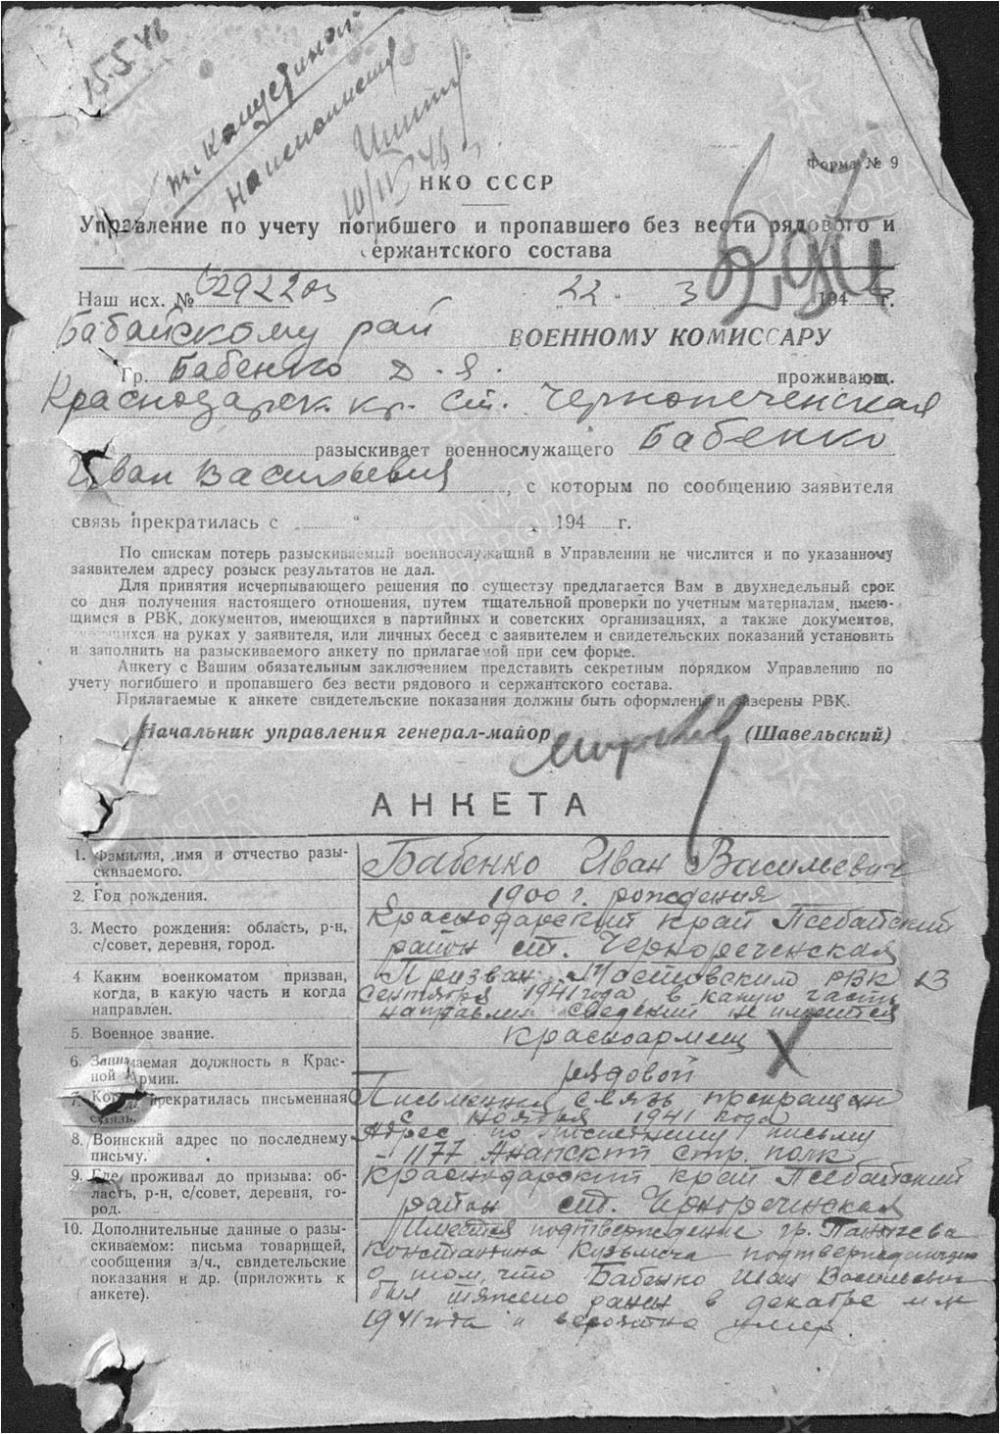 15.5.46
т. Капустиной
на исполнение
10/IV 46
Форма № 9
НКО СССР
Управление по учету погибшего и пропавшего без вести рядового и
сержантского состава
Наш исх. № 22. 3 194 г.
Бабайскому рай ВОЕННОМУ КОМИССАРУ
Гр. Бабенко Д. Я. проживающ.
Краснодарск. кр. ст. Чернопеченская
разыскивает военнослужащего Бабенко
Иван Васильевич, с которым по сообщению заявителя
связь прекратилась с " , 194 г.
По спискам потерь разыскиваемый военнослужащий в Управлении не числится и по указанному
заявителем адресу розыск результатов не дал.
Для принятия исчерпывающего решения по существу предлагается Вам в двухнедельный срок
со дня получения настоящего отношения, путем тщательной проверки по учетным материалам, имею-
щимся в РВК, документов, имеющихся в партийных и советских организациях, а также документов,
имеющихся на руках у заявителя, или личных бесед с заявителем и свидетельских показаний установить
и заполнить на разыскиваемого анкету по прилагаемой при сем форме.
Анкету с Вашим обязательным заключением представить секретным порядком Управлению по
учету погибшего и пропавшего без вести рядового и сержантского состава.
Прилагаемые к анкете свидетельские показания должны быть оформлены и заверены РВК.
Начальник управления генерал-майор (Шавельский)
АНКЕТА
1. Фамилия, имя и отчество разы-
скиваемого.
Бабенко Иван Васильевич
2. Год рождения.
1900 г. рождения
3. Место рождения: область, р-н,
с/совет, деревня, город.
Краснодарский край Псебайский
район ст. Чернореченская
4 Каким военкоматом призван,
когда, в какую часть и когда
направлен.
Призван Мостовским РВК 13
сентября 1941 года в какую часть
направлен сведений не имеется
5. Военное звание.
Красноармеец
6. Занимаемая должность в Крас-
ной Армии.
рядовой
7. Когда прекратилась письменная
связь.
Письменная связь прекращен
с ноября 1941 года
8. Воинский адрес по последнему
письму.
Адрес по последнему письму
- 1177 Анапский стр. полк
9. Где проживал до призыва: об-
ласть, р-н, с/совет, деревня, го-
род.
Краснодарский край Псебайский
район ст. Чернореченская
10. Дополнительные данные о разы-
скиваемом: письма товарищей,
сообщения з/ч., свидетельские
показания и др. (приложить к
анкете).
Имеется подтверждение гр.
Константина Кузьмича
о том, что Бабенко Иван Васильевич
был тяжело ранен в декабре м-це
1941 года и вероятно умер.